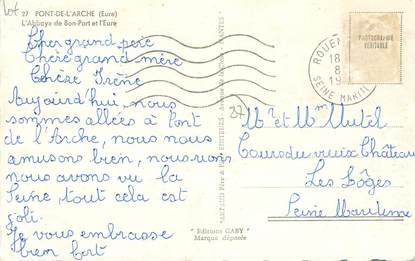 Lot
27 PONT-DE-L'ARCHE (Eure)
L'Abbaye de Bon-Port et l'Eure
Cher grand père
Chère grand mère
Chère Irène
Aujourd'hui, nous
sommes allées à Pont
de l'Arche, nous nous
amusons bien, nous
nous avons vu la
Seine, tout cela est
joli.
Je vous embrasse
bien fort
"Editions GABY"
Marque déposée
PHOTOGRAPHIE
VÉRITABLE
ROUEN
18
8
19
SEINE MARITI
27
Mr et Mm Mutel
Cours du vieux Château
Les Lôges
Seine Maritime